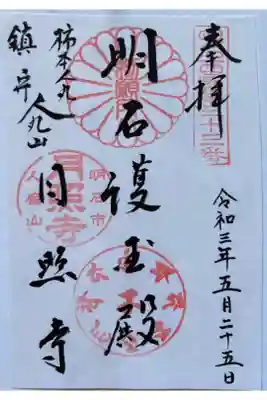 奉拝
令和三年五月二十五日
明石護殿
月照寺
柿本人丸
鎮守
人丸山
月照寺
明石市
人麿山